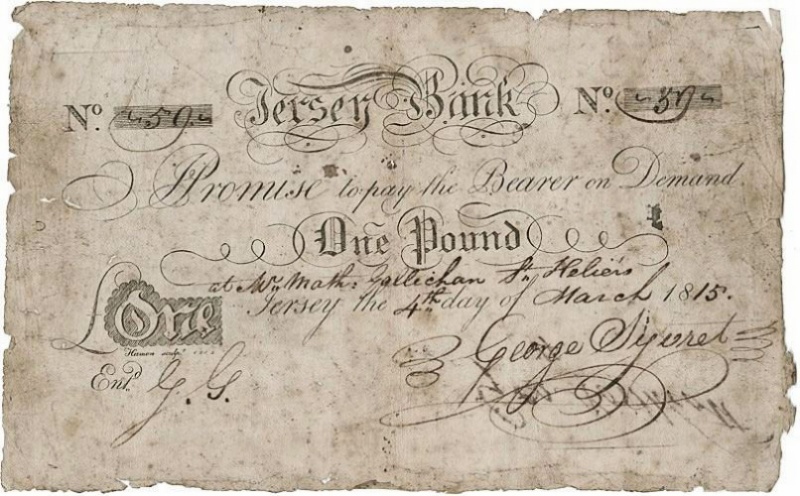 No. 59 Jersey Bank No. 59
I Promise to pay the Bearer on Demand
One Pound
at Mr. Math: Gallichan St. Heliers
Jersey the 4th day of March 1815.
£One
George Syvret
Ent.d G. G.